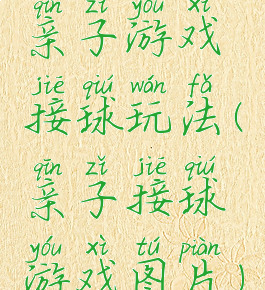 qīn zǐ yóu xì
亲子游戏
jiē qiú wán fǎ
接球玩法(
qīn zǐ jiē qiú
亲子接球
yóu xì tú piàn
游戏图片)